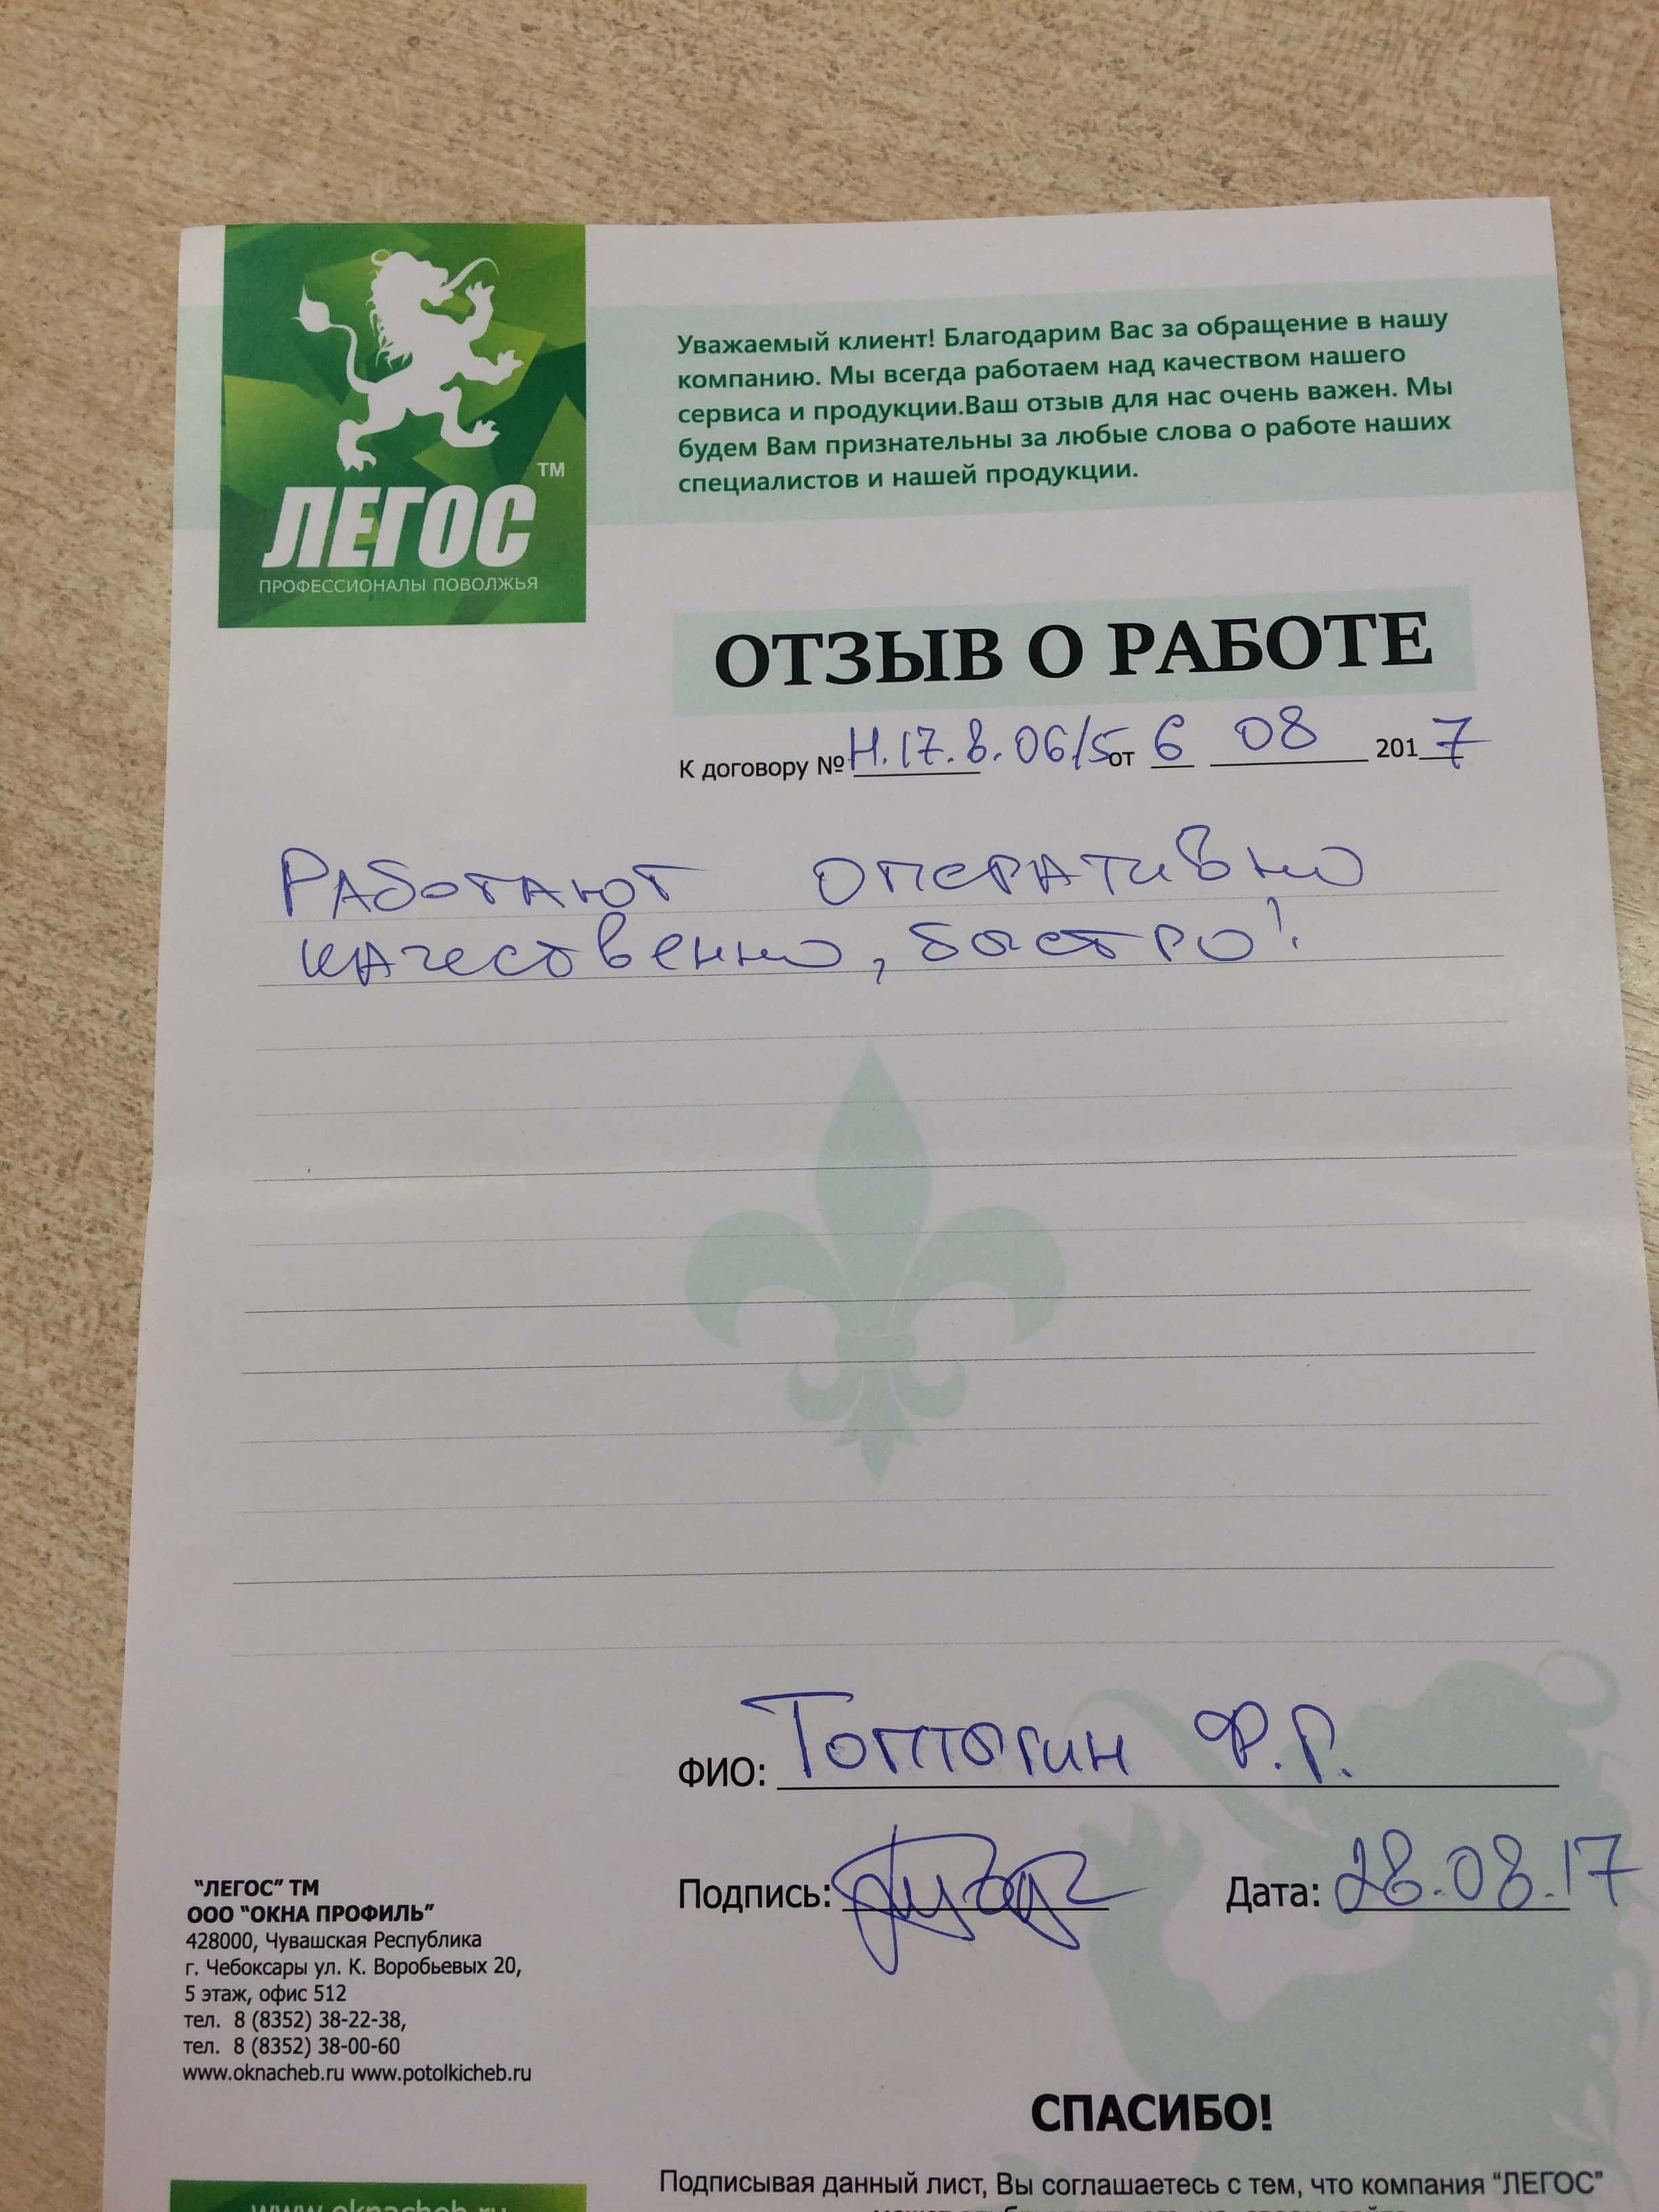 Уважаемый клиент! Благодарим Вас за обращение в нашу
компанию. Мы всегда работаем над качеством нашего
сервиса и продукции.Ваш отзыв для нас очень важен. Мы
будем Вам признательны за любые слова о работе наших
специалистов и нашей продукции.
ТМ
ЛЕГОС
ПРОФЕССИОНАЛЫ ПОВОЛЖЬЯ
ОТЗЫВ О РАБОТЕ
К договору № Н.17.8.06/5 от 6 08 2017
Работают оперативно
качественно, быстро!
ФИО: Топтыгин Ф.Г.
Подпись: Дата: 28.08.17
"ЛЕГОС" ТМ
ООО "ОКНА ПРОФИЛЬ"
428000, Чувашская Республика
г. Чебоксары ул. К. Воробьевых 20,
5 этаж, офис 512
тел. 8 (8352) 38-22-38,
тел. 8 (8352) 38-00-60
www.oknacheb.ru www.potolkicheb.ru
СПАСИБО!
Подписывая данный лист, Вы соглашаетесь с тем, что компания "ЛЕГОС"
www.oknacheb.ru